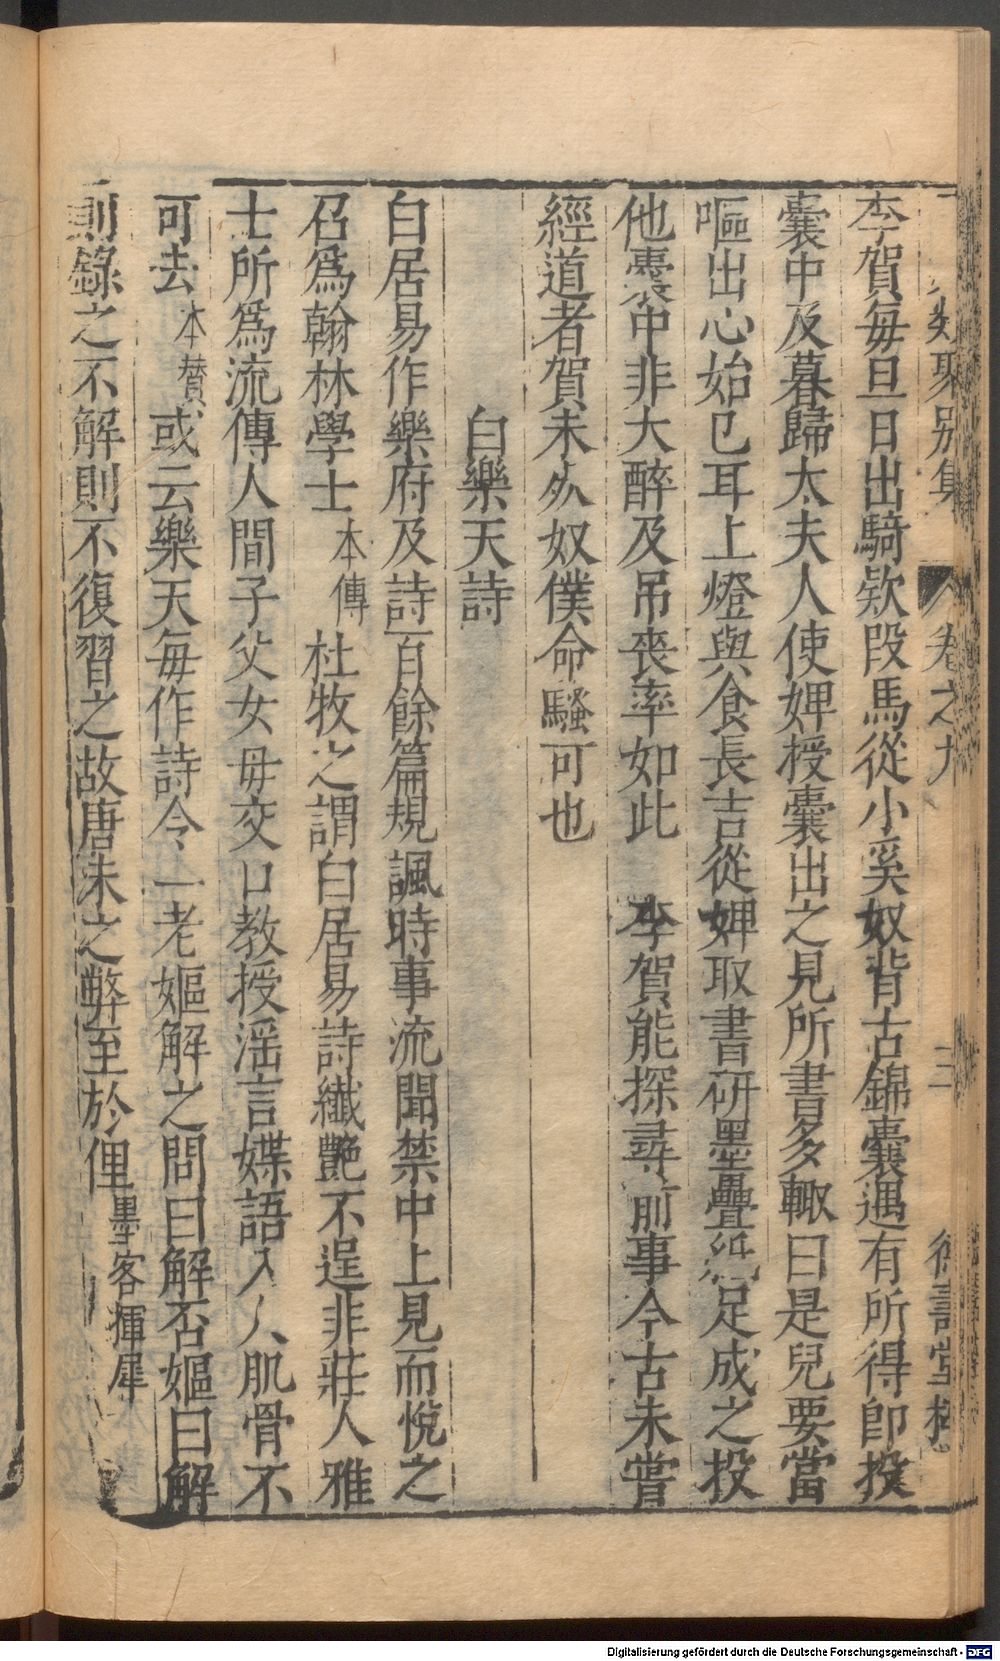 類聚別集 卷之九 三 德壽堂梓
李賀每旦日出騎欵段馬從小奚奴背古錦囊遇有所得卽投
囊中及暮歸太夫人使婢授囊出之見所書多輙曰是兒要當
嘔出心始已耳上燈與食長吉從婢取書研墨疊紙足成之投
他囊中非大醉及吊喪率如此 李賀能探尋前事今古未嘗
經道者賀未死奴僕命騷可也
白樂天詩
白居易作樂府及詩百餘篇規諷時事流聞禁中上見而悅之
召爲翰林學士本傳杜牧之謂白居易詩纖艷不逞非莊人雅
士所爲流傳人間子父女母交口敎授淫言媟語入人肌骨不
可去本贊或云樂天每作詩令一老嫗解之問曰解否嫗曰解
則錄之不解則不復習之故唐末之弊至於俚墨客揮犀
Digitalisierung gefördert durch die Deutsche Forschungsgemeinschaft - DFG